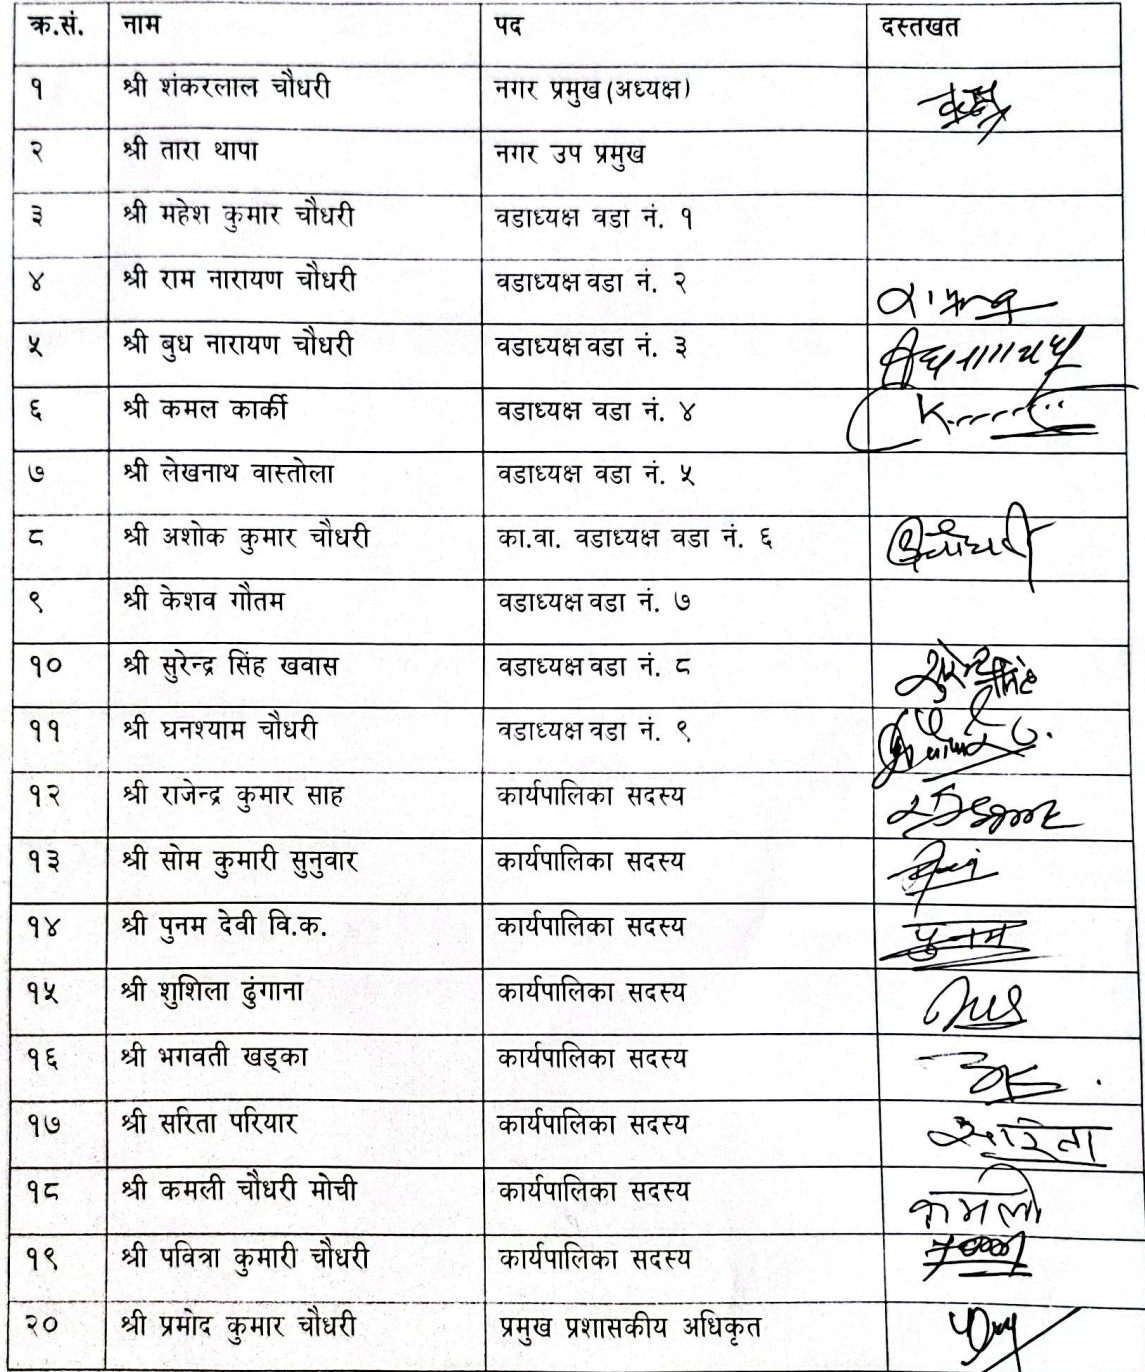 क्र.सं. नाम पद दस्तखत
१ श्री शंकरलाल चौधरी नगर प्रमुख (अध्यक्ष)
२ श्री तारा थापा नगर उप प्रमुख
३ श्री महेश कुमार चौधरी वडाध्यक्ष वडा नं. १
४ श्री राम नारायण चौधरी वडाध्यक्ष वडा नं. २
५ श्री बुध नारायण चौधरी वडाध्यक्ष वडा नं. ३
६ श्री कमल कार्की वडाध्यक्ष वडा नं. ४
७ श्री लेखनाथ वास्तोला वडाध्यक्ष वडा नं. ५
८ श्री अशोक कुमार चौधरी का.वा. वडाध्यक्ष वडा नं. ६
९ श्री केशव गौतम वडाध्यक्ष वडा नं. ७
१० श्री सुरेन्द्र सिंह खवास वडाध्यक्ष वडा नं. ८
११ श्री घनश्याम चौधरी वडाध्यक्ष वडा नं. ९
१२ श्री राजेन्द्र कुमार साह कार्यपालिका सदस्य
१३ श्री सोम कुमारी सुनुवार कार्यपालिका सदस्य
१४ श्री पुनम देवी वि.क. कार्यपालिका सदस्य पुनम
१५ श्री शुशिला ढुंगाना कार्यपालिका सदस्य
१६ श्री भगवती खड्का कार्यपालिका सदस्य
१७ श्री सरिता परियार कार्यपालिका सदस्य सरिता
१८ श्री कमली चौधरी मोची कार्यपालिका सदस्य कमली
१९ श्री पवित्रा कुमारी चौधरी कार्यपालिका सदस्य
२० श्री प्रमोद कुमार चौधरी प्रमुख प्रशासकीय अधिकृत